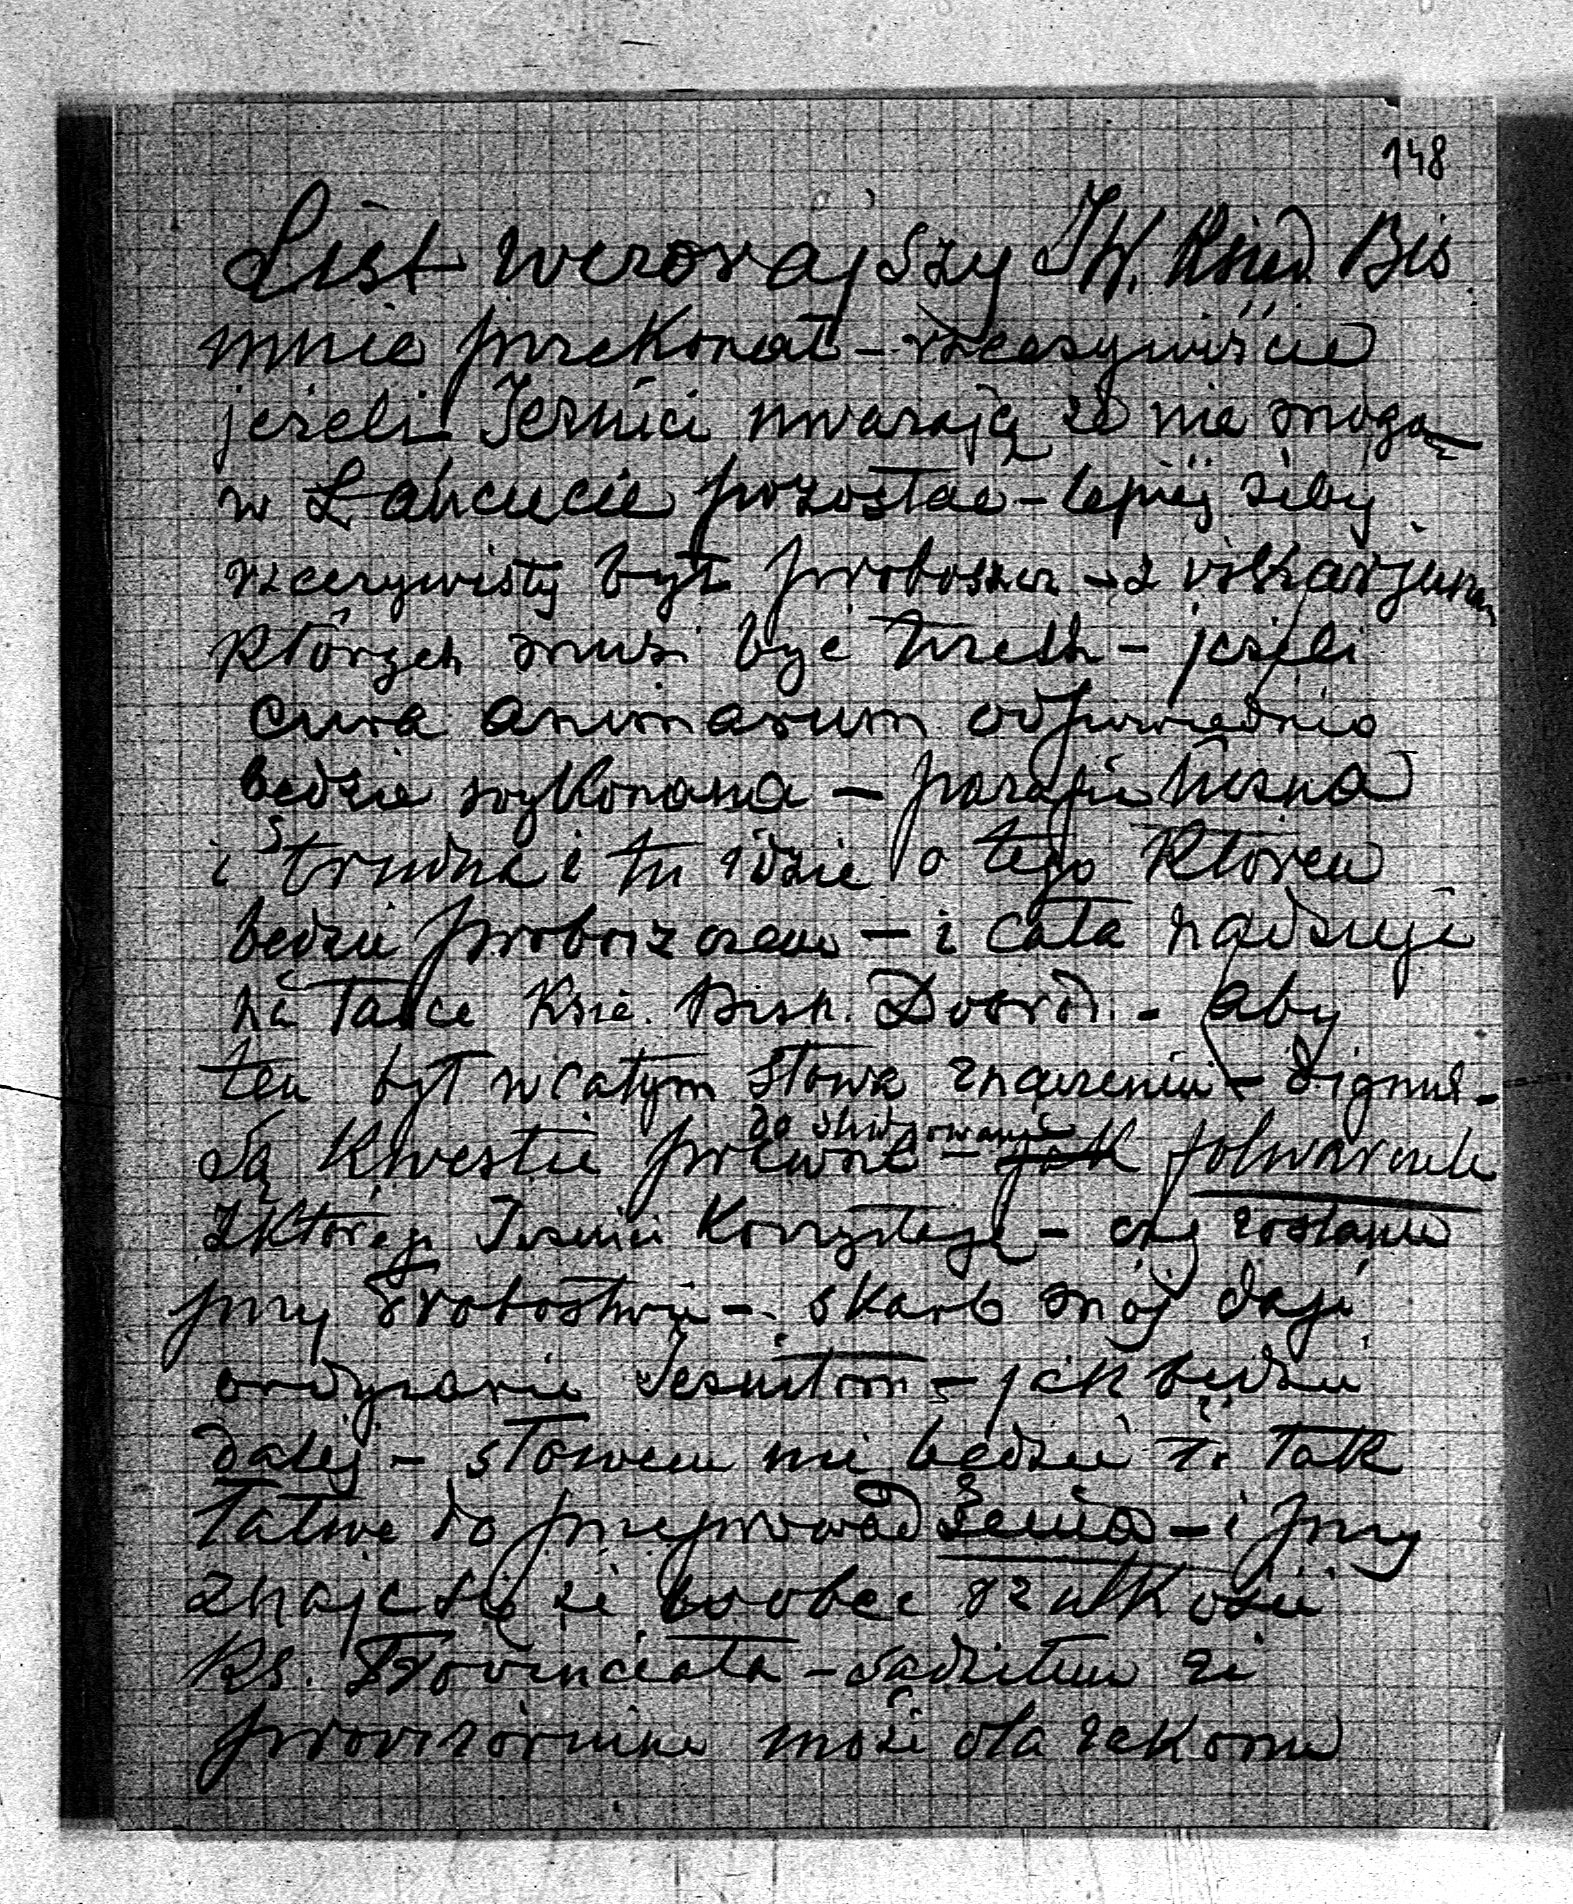 148
List wczorajszy JW. Księd. Bis
mnie przekonał – rzeczywiście
jeżeli Jezuici uważają że nie mogą
w Łańcucie pozostać – lepiej żeby
rzeczywisty był proboszcz – z wikarjuszem
których musi być trzech – jeżeli
cura animarum odpowiednio
będzie wykonana – parafia liczna
i trudna i tu idzie o tego który
będzie proboszczem – i cała nadzieję
na łasce Księ. Bisk. Dobrod. – aby
ten był w całym słowa znaczeniu – dignus –
Są kwestie prawne do skwitowania – jak folwarczek
z którego Jezuici korzystają – czy zostanie
przy Probostwie – skarb mój daje
ordynarie Jezuitom – jak będzie
dalej – słowem nie będzie to tak
łatwe do przeprowadzenia – i przy
znaję się że wobec
Ks. Prowincjała – sądziłem że
prowizorycznie może dla zakonu